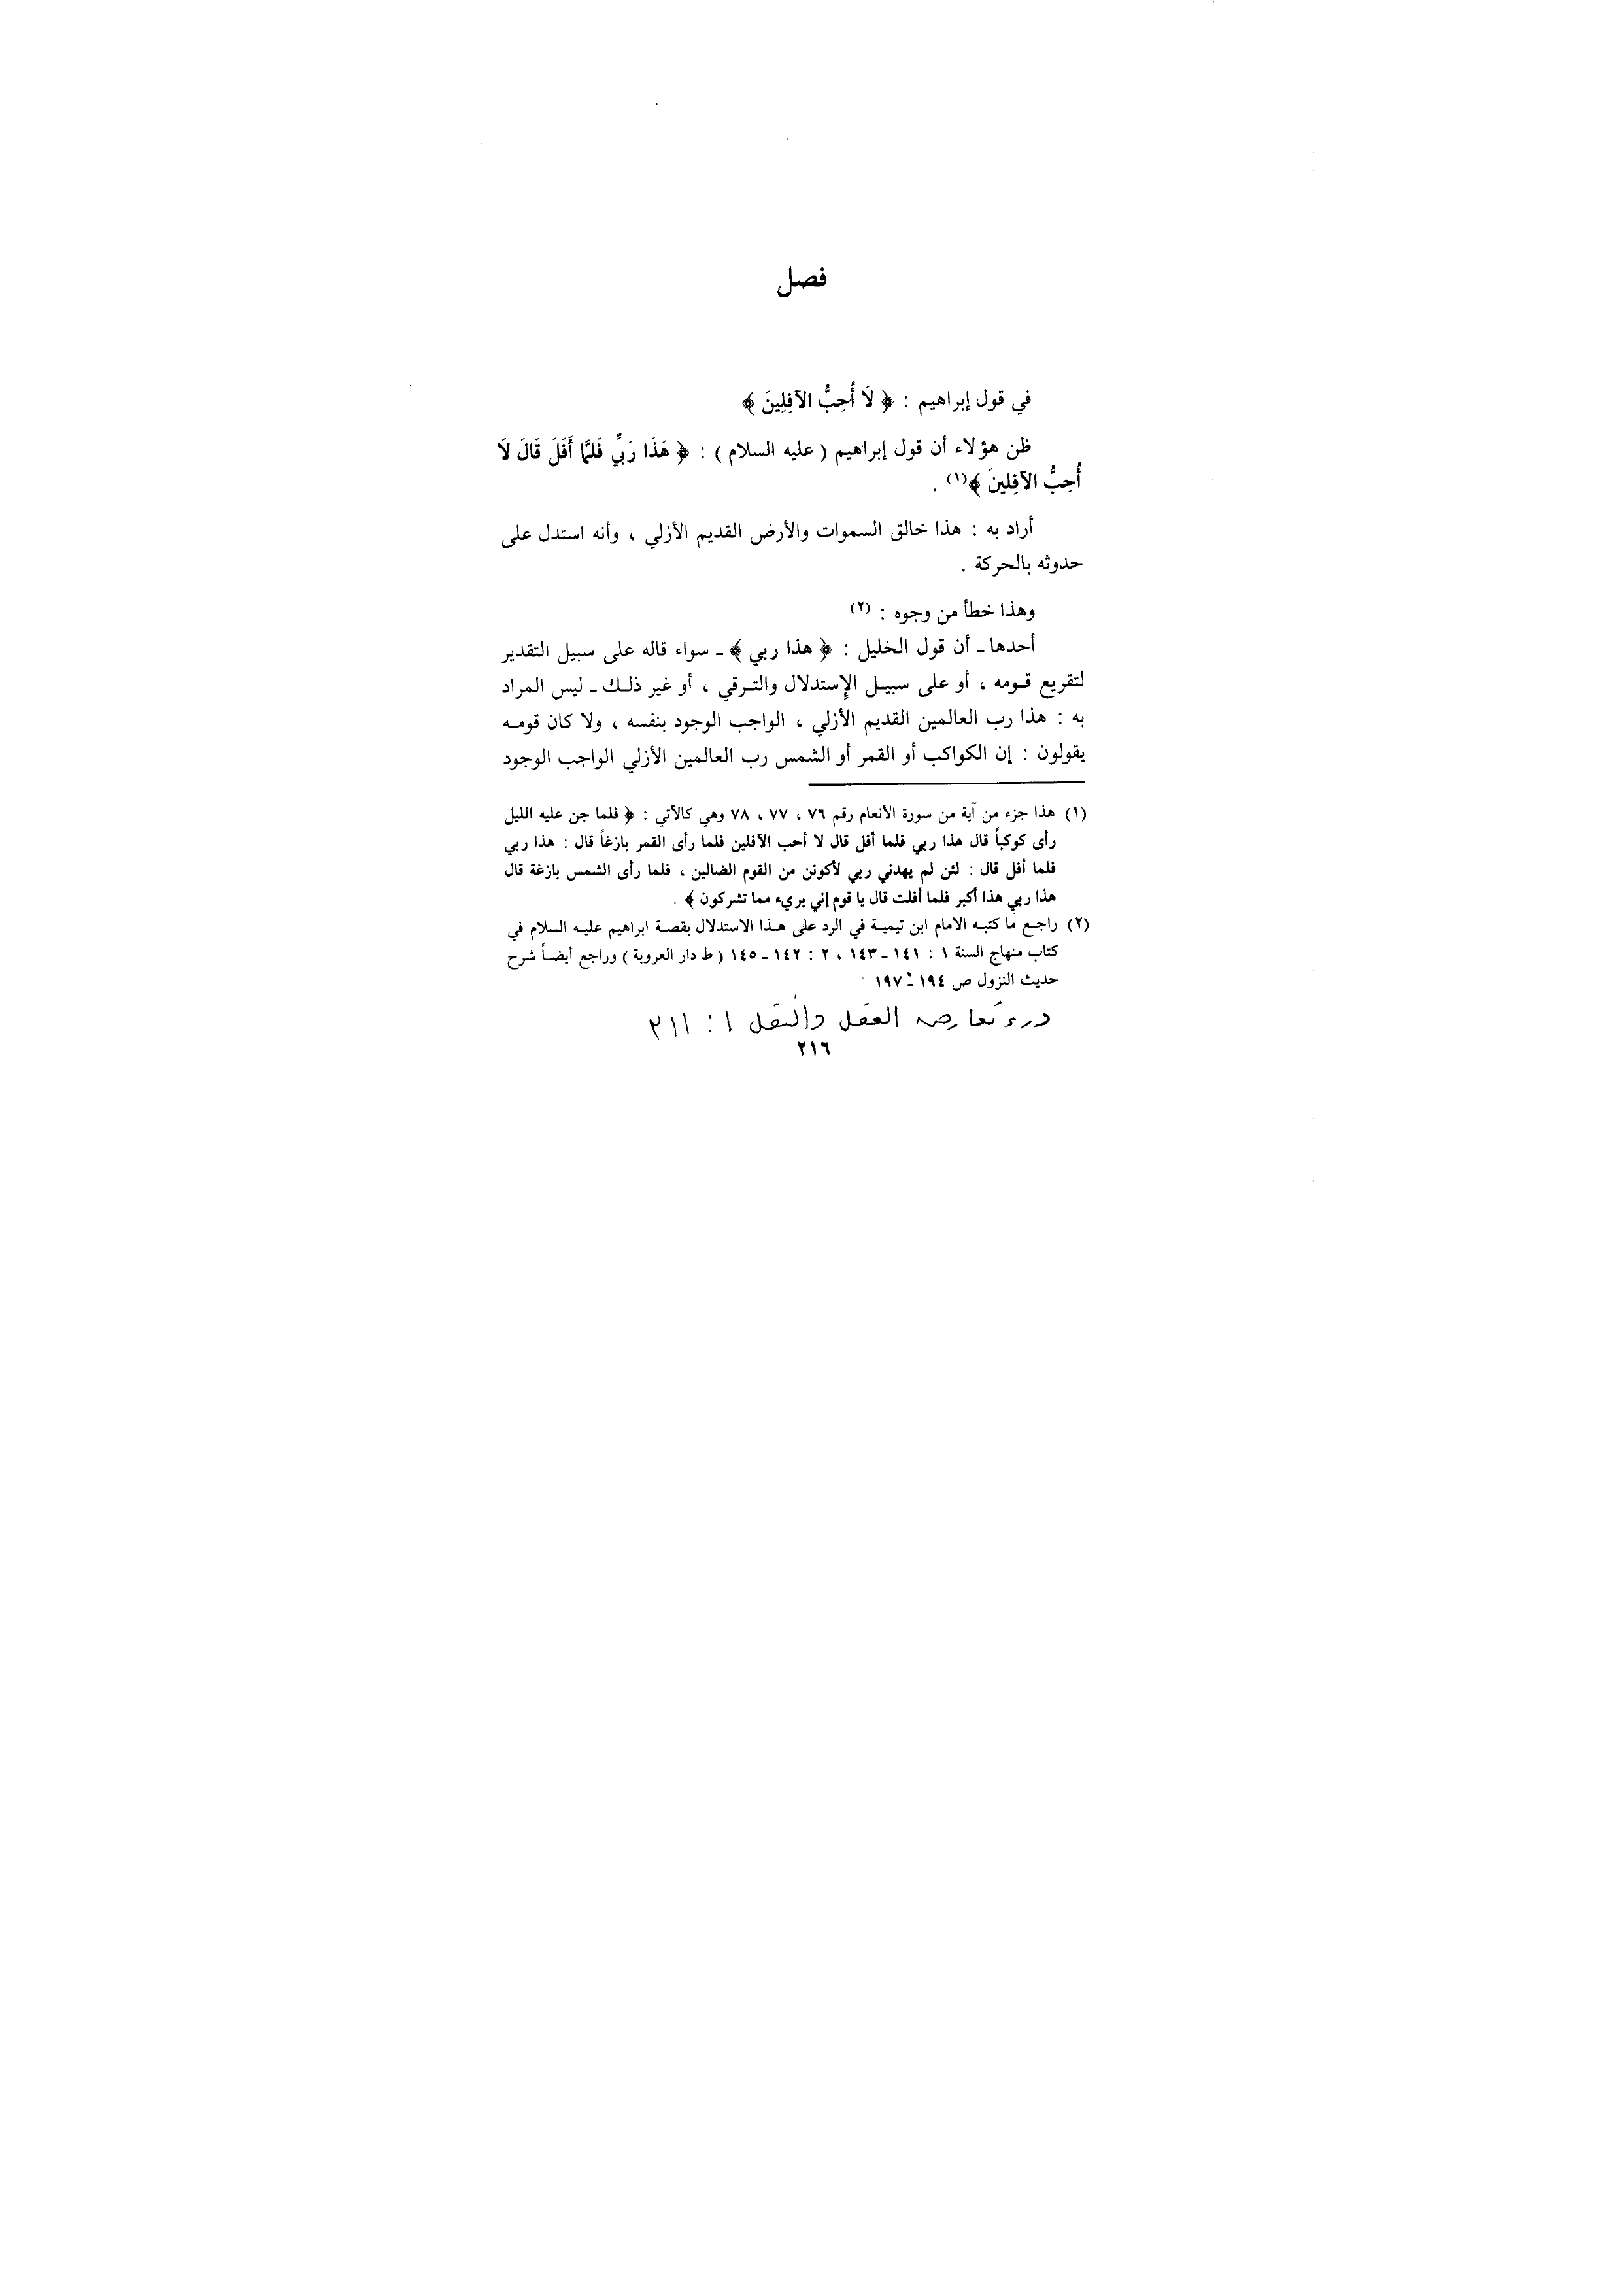 فصل
في قول إبراهيم : ﴿ لَا أُحِبُّ الآفِلِينَ ﴾
ظن هؤلاء أن قول إبراهيم ( عليه السلام ) : ﴿ هَذَا رَبِّي فَلَمَّا أَفَلَ قَالَ لَا
أُحِبُّ الآفِلينَ ﴾(١) .
أراد به : هذا خالق السموات والأرض القديم الأزلي ، وأنه استدل على
حدوثه بالحركة .
وهذا خطأ من وجوه : (٢)
أحدها ـ أن قول الخليل : ﴿ هذا ربي ﴾ ـ سواء قاله على سبيل التقدير
لتقريع قـومه ، أو على سبيـل الإستدلال والتـرقي ، أو غير ذلـك ـ ليس المراد
به : هذا رب العالمين القديم الأزلي ، الواجب الوجود بنفسه ، ولا كان قومـه
يقولون : إن الكواكب أو القمر أو الشمس رب العالمين الأزلي الواجب الوجود
(١) هذا جزء من آية من سورة الأنعام رقم ٧٦ ، ٧٧ ، ٧٨ وهي كالآتي : ﴿ فلما جن عليه الليل
رأى كوكباً قال هذا ربي فلما أفل قال لا أحب الآفلين فلما رأى القمر بازغاً قال : هذا ربي
فلما أفل قال : لئن لم يهدني ربي لأكونن من القوم الضالين ، فلما رأى الشمس بازغة قال
هذا ربي هذا أكبر فلما أفلت قال يا قوم إني بريء مما تشركون ﴾ .
(٢) راجـع ما كتبـه الامام ابن تيميـة في الرد على هـذا الاستدلال بقصـة ابراهيم عليـه السلام في
كتاب منهاج السنة ١ : ١٤١ ـ ١٤٣ ، ٢ : ١٤٢ ـ ١٤٥ ( ط دار العروبة ) وراجع أيضـاً شرح
حديث النزول ص ١٩٤ ـ ١٩٧
درء تعارض العقل والنقل ١ : ٣١١
٢١٦